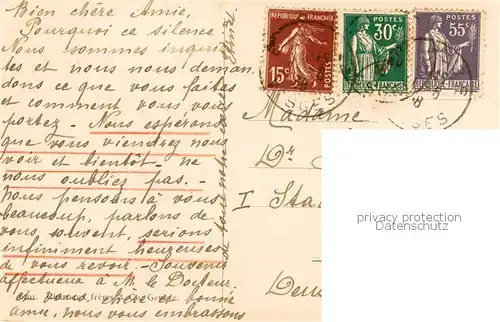 Bien chère Amie,
Pourquoi ce silence
Nous sommes inquiè
tes et nous nous deman
dons ce que vous faites
et comment vous vous
portez. - Nous espérons
que vous viendrez nous
voir et bientôt - ne
nous oubliez pas. -
Nous pensons à vous
beaucoup, parlons de
vous souvent, serions
infiniment heureuses
de vous revoir. - Souvenir
affectueux à M. le Docteur
et vous chère et bonne
amie, nous vous embrassons
de tout notre
REPUBLIQUE FRANÇAISE
POSTES
15c
30c
POSTES
REPUBLIQUE FRANÇAISE
55c
POSTES
REPUBLIQUE FRANÇAISE
SGES
SGES
Madame
Dr
I Sta
privacy protection
Datenschutz